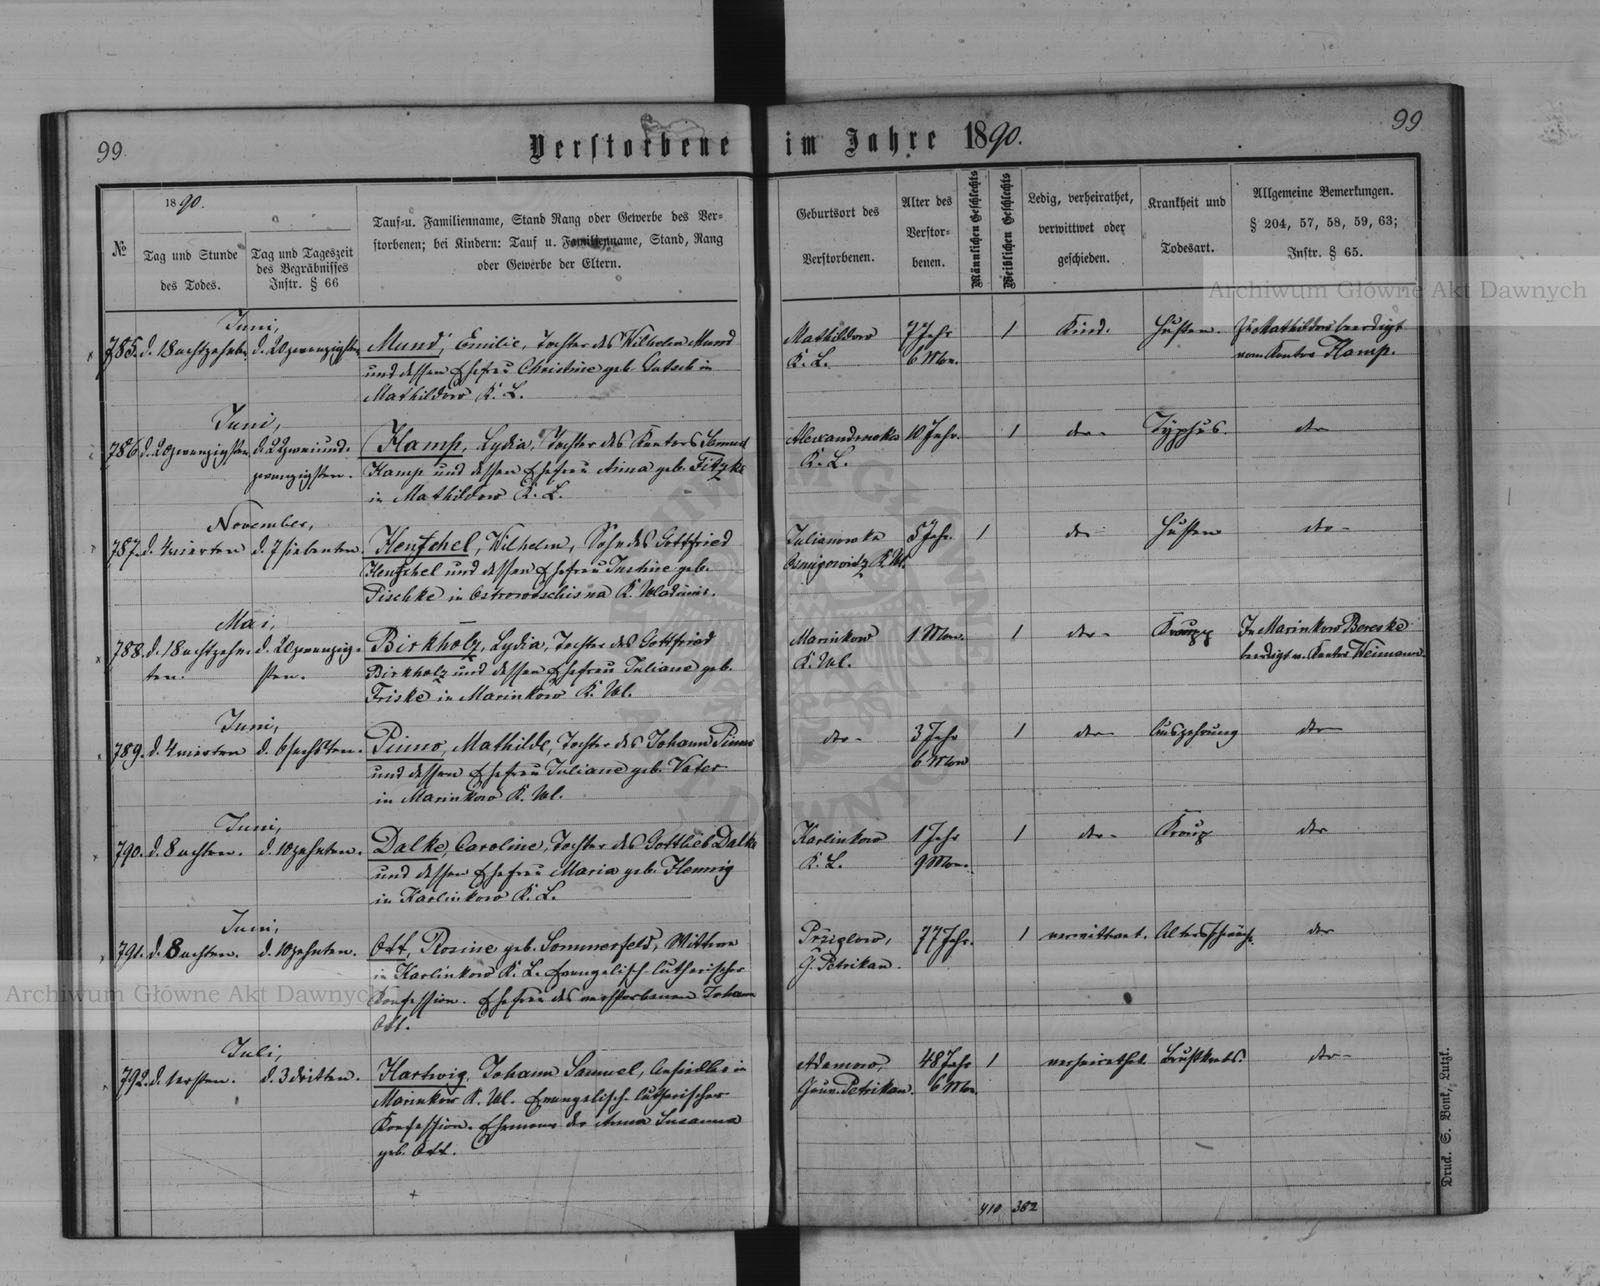 99
Verstorbene im Jahre 1890.
99
1890.
№
Tag und Stunde
des Todes.
Tag und Tageszeit
des Begräbnisses
Instr. § 66
Tauf-u. Familienname, Stand Rang oder Gewerbe des Ver-
storbenen; bei Kindern: Tauf u. Familienname, Stand, Rang
oder Gewerbe der Eltern.
Geburtsort des
Verstorbenen.
Alter des
Verstor-
benen.
Männlichen Geschlechts
Weiblichen Geschlechts
Ledig, verheirathet,
verwittwet oder
geschieden.
Krankheit und
Todesart.
Allgemeine Bemerkungen.
§ 204, 57, 58, 59, 63;
Instr. § 65.
Archiwum Główne Akt Dawnych
Juni,
785. d. 18 achtzehn. d. 20 zwanzigsten Mund, Emilie, Tochter des Wilhelm Mund
und dessen Ehefrau Christine geb. Gatsch in
Mathildow K. L.
Mathildow 7 Jahr 1 Kind. Husten. Zu Mathildow beerdigt
K. L. 6 Mon. vom Kantor Kamp.
Juni,
786. d. 20 zwanzigsten d. 22 zweiund- Kamp, Lydia, Tochter des Kantors Samuel
zwanzigsten. Kamp und dessen Ehefrau Anna geb. Fitzke
in Mathildow K. L.
Alexandrowka 10 Jahr. 1 do- Typhus. do
K. L.
November,
787. d. 4 vierten d. 7 siebenten. Hentschel, Wilhelm, Sohn des Gottfried
Hentschel und dessen Ehefrau Justine geb.
Pischke in Ostrowoschisna K. Wladimir.
Julianowka 5 Jahr. 1 do- Husten do-
K. Wl.
Mai,
788. d. 18 achtzehn- d. 20 zwanzig- Birkholz, Lydia, Tochter des Gottfried
ten. sten. Birkholz und dessen Ehefrau Juliane geb.
Friske in Marinkow K. Wl.
Marinkow 1 Mon. 1 do- Kroup In Marinkow Bereske
K. Wl. beerdigt v. Kantor Weimann.
Juni,
789. d. 4 vierten d. 6 sechsten. Pinno, Mathilde, Tochter des Johann Pinno
und dessen Ehefrau Juliane geb. Vater
in Marinkow K. Wl.
do- 3 Jahr 1 do- Auszehrung do
6 Mon
Juni,
790. d. 8 achten. d. 10 zehnten. Dalke, Caroline, Tochter des Gottlieb Dalke
und dessen Ehefrau Maria geb. Hennig
in Karlinkow K. L.
Karlinkow 1 Jahr 1 do- Kroup do
K. L. 9 Mon.
Juni,
791. d. 8 achten. d. 10 zehnten. Ott, Rosine geb. Sommerfeld, Wittwe
in Karlinkow K. L. Evangelisch-lutherischer
Konfession. Ehefrau des verstorbenen Johann
Ott.
Prziglow, 77 Jahr. 1 verwittwet. Altersschwäche. do
G. Petrikau.
Archiwum Główne Akt Dawnych
Juli,
792. d. 1 ersten. d. 3 dritten. Hartwig, Johann Samuel, Ansiedler in
Marinkow K. Wl. Evangelisch-lutherischer
Konfession. Ehemann der Anna Susanna
geb. Ott.
Adamow, 48 Jahr 1 verheirathet Brustkrebs. do-
Gouv. Petrikau. 6 Mon.
410 382
Druck. S. Bonk, Lutzk.